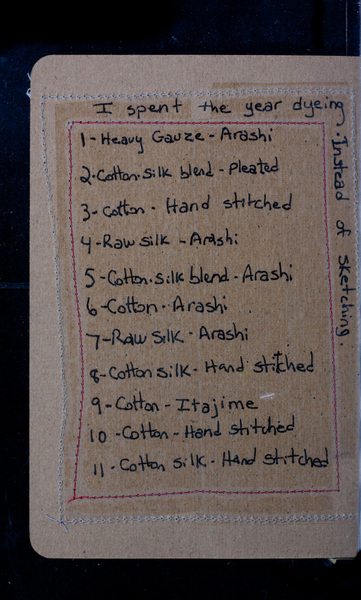 I spent the year dyeing
. Instead of sketching.
1-Heavy Gauze-Arashi
2-Cotton-silk blend-Pleated
3-Cotton-Hand stitched
4-Raw silk-Arashi
5-Cotton-silk blend-Arashi
6-Cotton-Arashi
7-Raw silk-Arashi
8-Cotton silk-Hand stitched
9-Cotton-Itajime
10-Cotton-Hand stitched
11-Cotton silk-Hand stitched